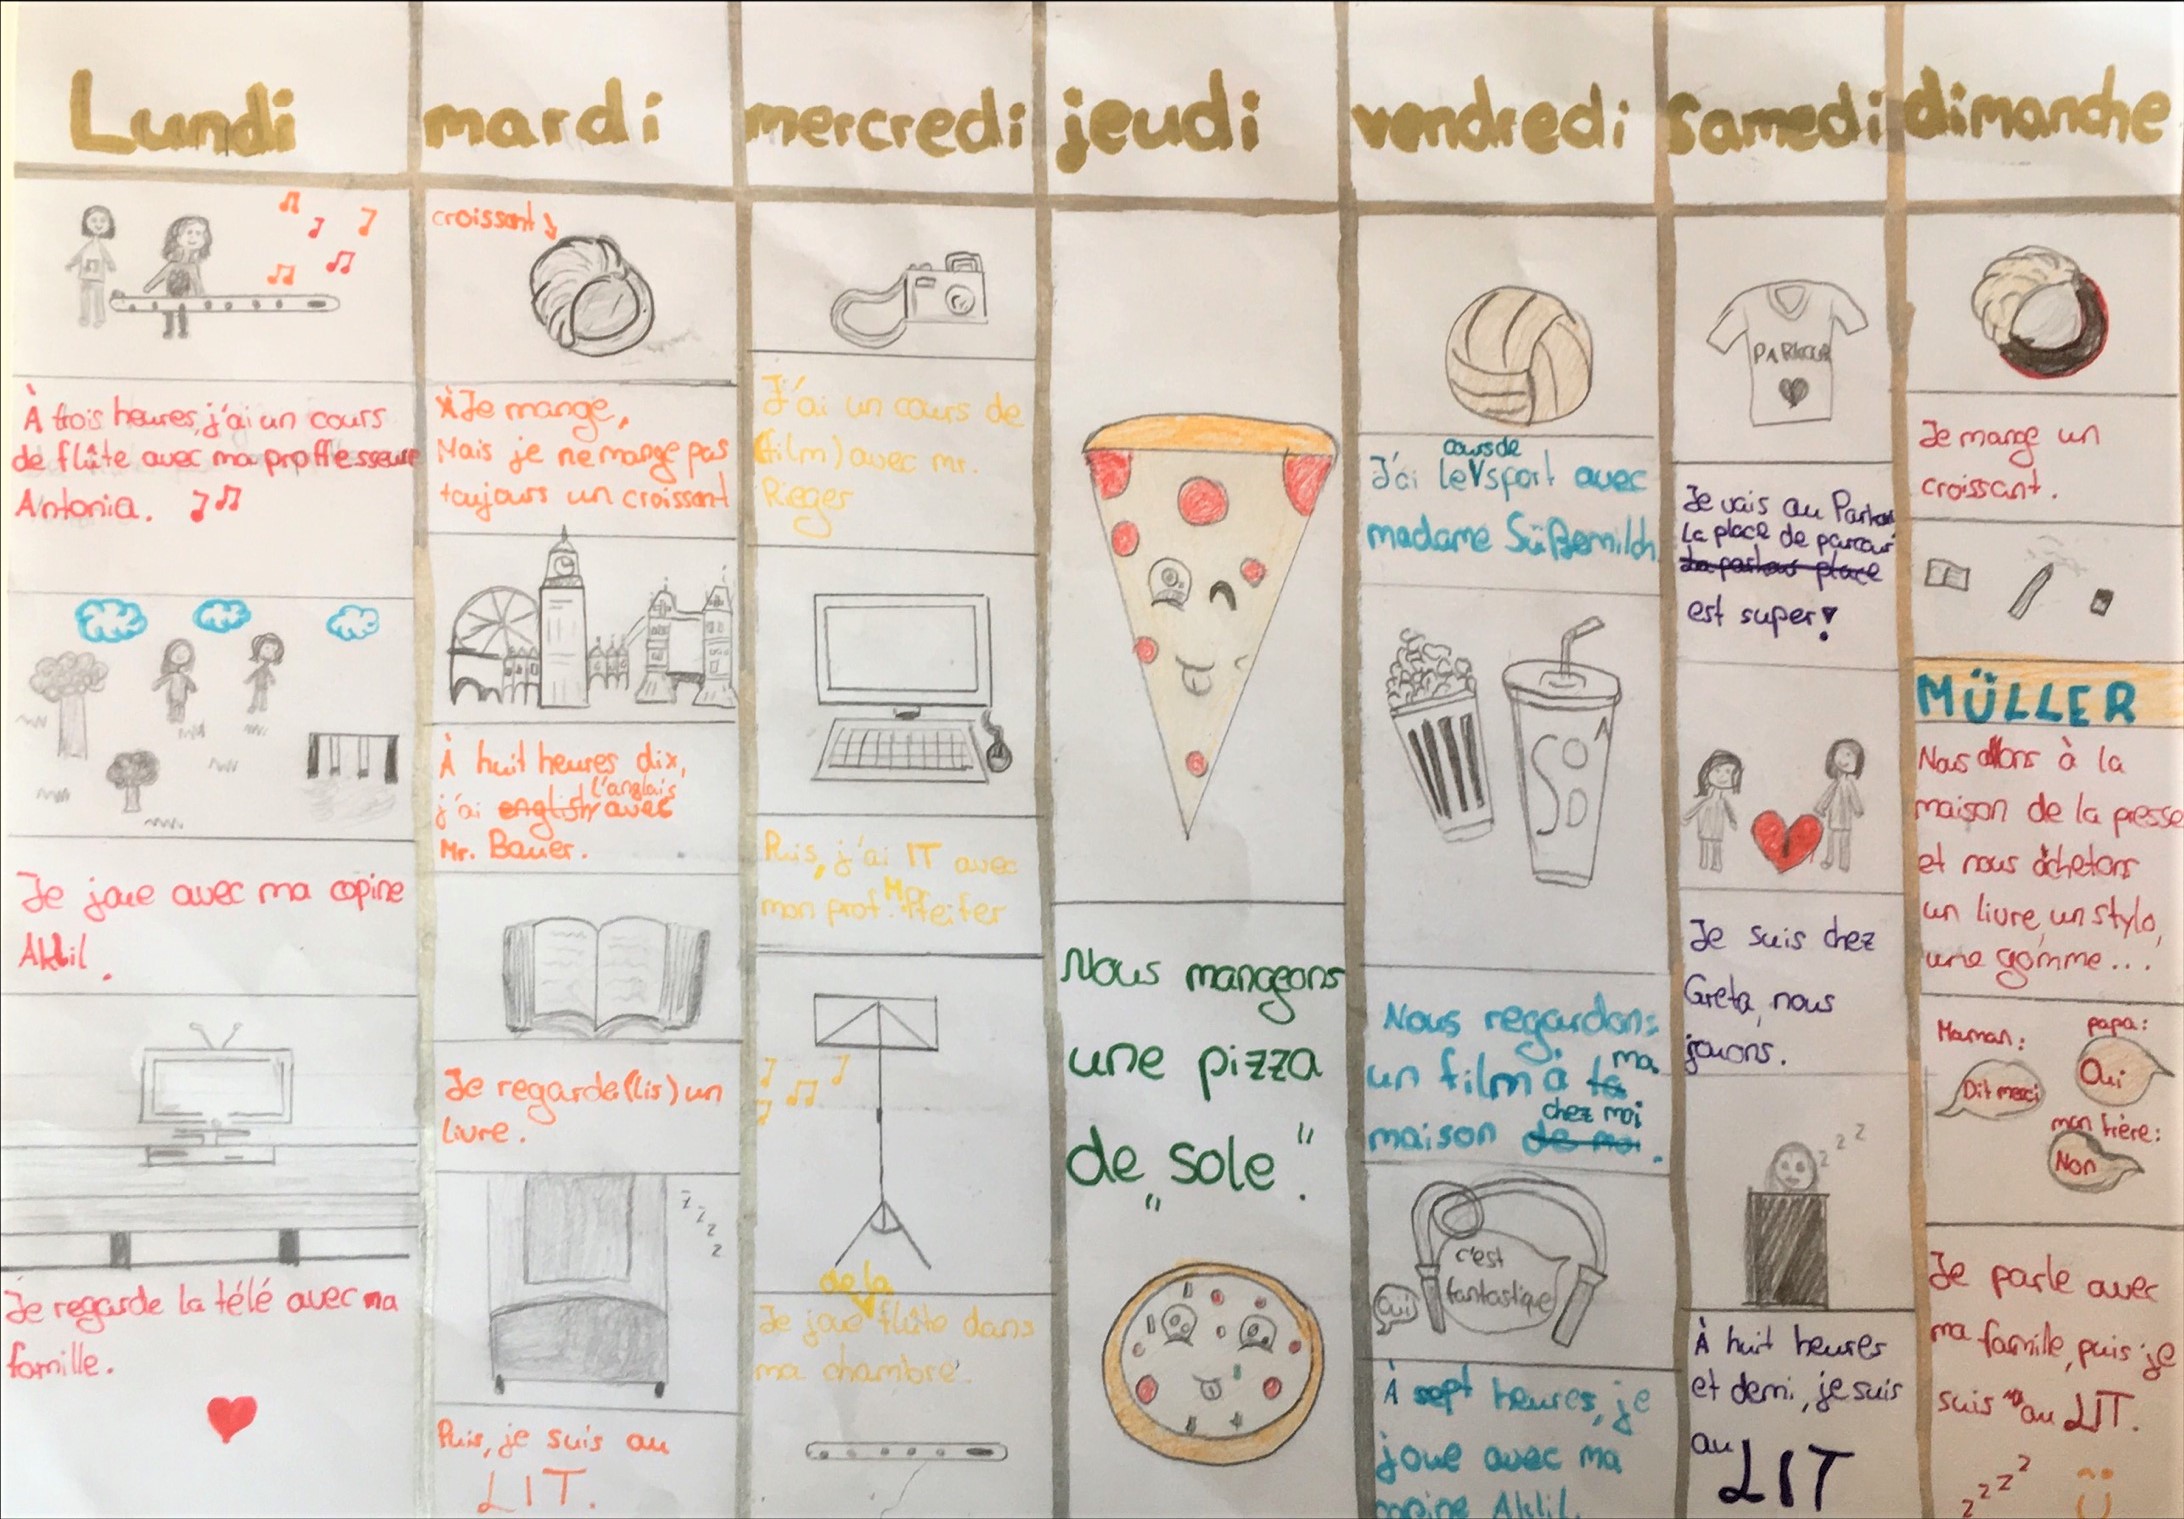 Lundi
À trois heures, j'ai un cours
de flûte avec ma proffesseure
Antonia.
Je joue avec ma copine
Aklil.
Je regarde la télé avec ma
famille.
mardi
croissant
Je mange,
Mais je ne mange pas
toujours un croissant
À huit heures dix,
l'anglais
j'ai english avec
Mr. Bauer.
Je regarde (lis) un
livre.
z z z z
Puis, je suis au
LIT.
mercredi
J'ai un cours de
(film) avec mr.
Rieger
Puis, j'ai IT avec
mon prof. Mr. Pfeifer
de la
Je joue flûte dans
ma chambre.
jeudi
Nous mangeons
une pizza
de „sole“.
vendredi
cours de
J'ai le sport avec
madame Süßemilch
SODA
Nous regardons
un film à ta ma
chez moi
maison de moi.
c'est
fantastique
Oui
À sept heures, je
joue avec ma
copine Aklil.
Samedi
PARKOUR
Je vais au Parkour
La place de parcour
La parkour place
est super!
Je suis chez
Greta, nous
jouons.
z z z
À huit heures
et demi, je suis
au LIT
dimanche
Je mange un
croissant.
MÜLLER
Nous allons à la
maison de la presse
et nous achetons
un livre, un stylo,
une gomme...
Maman:
Dit merci
papa:
Oui
mon frère:
Non
Je parle avec
ma famille, puis je
suis au LIT.
z z z z